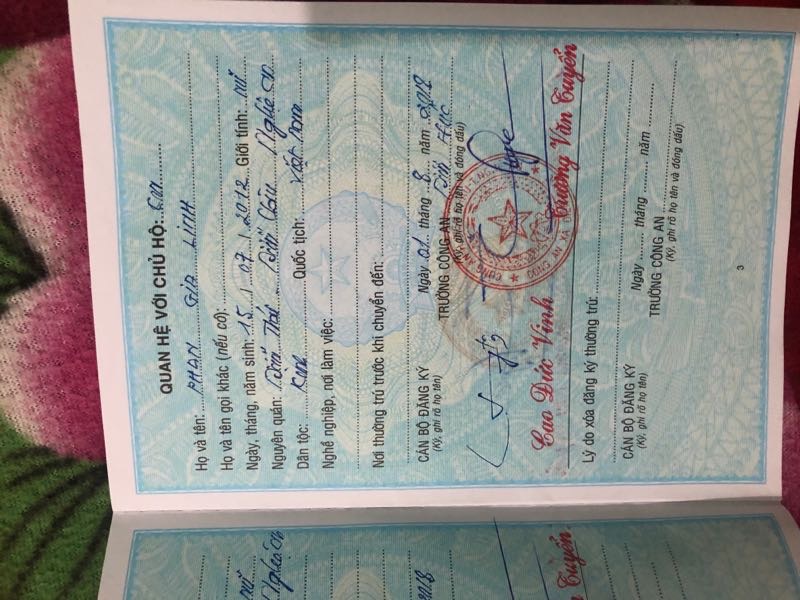 QUAN HỆ VỚI CHỦ HỘ: Em
Họ và tên: PHAN GIA LINH
Họ và tên gọi khác (nếu có):
Ngày, tháng, năm sinh: 15 / 07 / 2012 Giới tính: nữ
Nguyên quán: Diễn Thái Diễn Châu Nghệ An
Dân tộc: Kinh Quốc tịch: Việt Nam
Nghề nghiệp, nơi làm việc:
Nơi thường trú trước khi chuyển đến:
Ngày 01 tháng 8 năm 2018
CÁN BỘ ĐĂNG KÝ TRƯỞNG CÔNG AN
(Ký, ghi rõ họ tên) (Ký, ghi rõ họ tên và đóng dấu)
Cao Đức Vinh Trương Văn Tuyển
Lý do xóa đăng ký thường trú:
CÁN BỘ ĐĂNG KÝ Ngày ........ tháng ........ năm ............
(Ký, ghi rõ họ tên)
TRƯỞNG CÔNG AN
(Ký, ghi rõ họ tên và đóng dấu)
3
nữ
Nghệ An
2018
n Tuyển